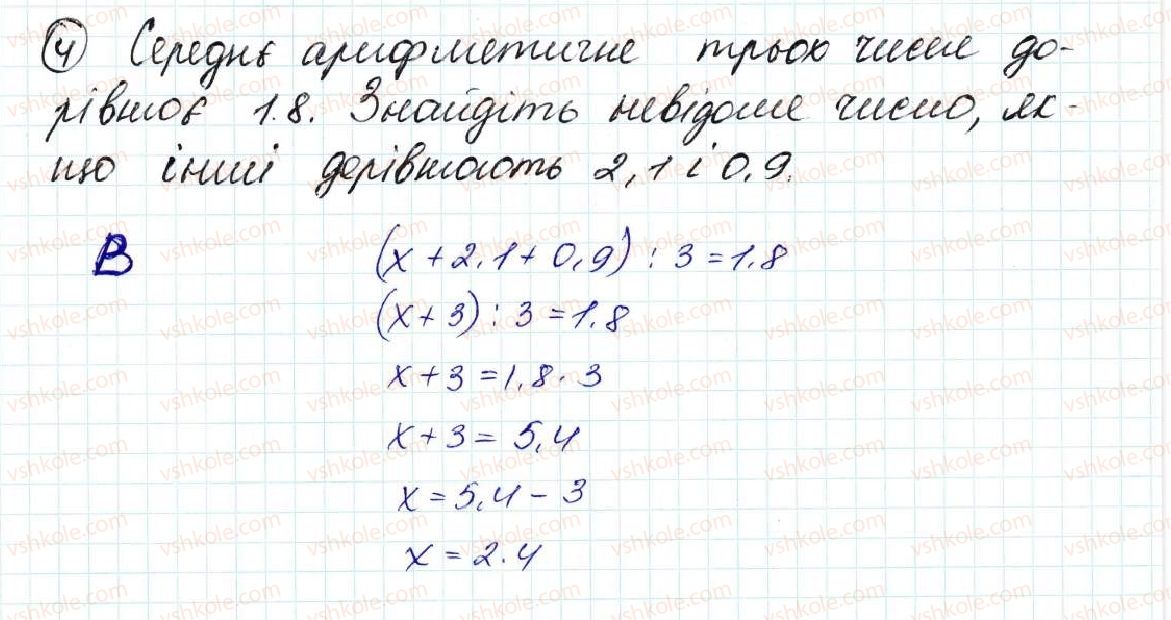 4 Середнє арифметичне трьох чисел до-
рівнює 1.8. Знайдіть невідоме число, як-
що інші дорівнюють 2,1 і 0,9.
В
(x + 2,1 + 0,9) : 3 = 1,8
(x + 3) : 3 = 1,8
x + 3 = 1,8 · 3
x + 3 = 5,4
x = 5,4 - 3
x = 2.4
vshkole.com